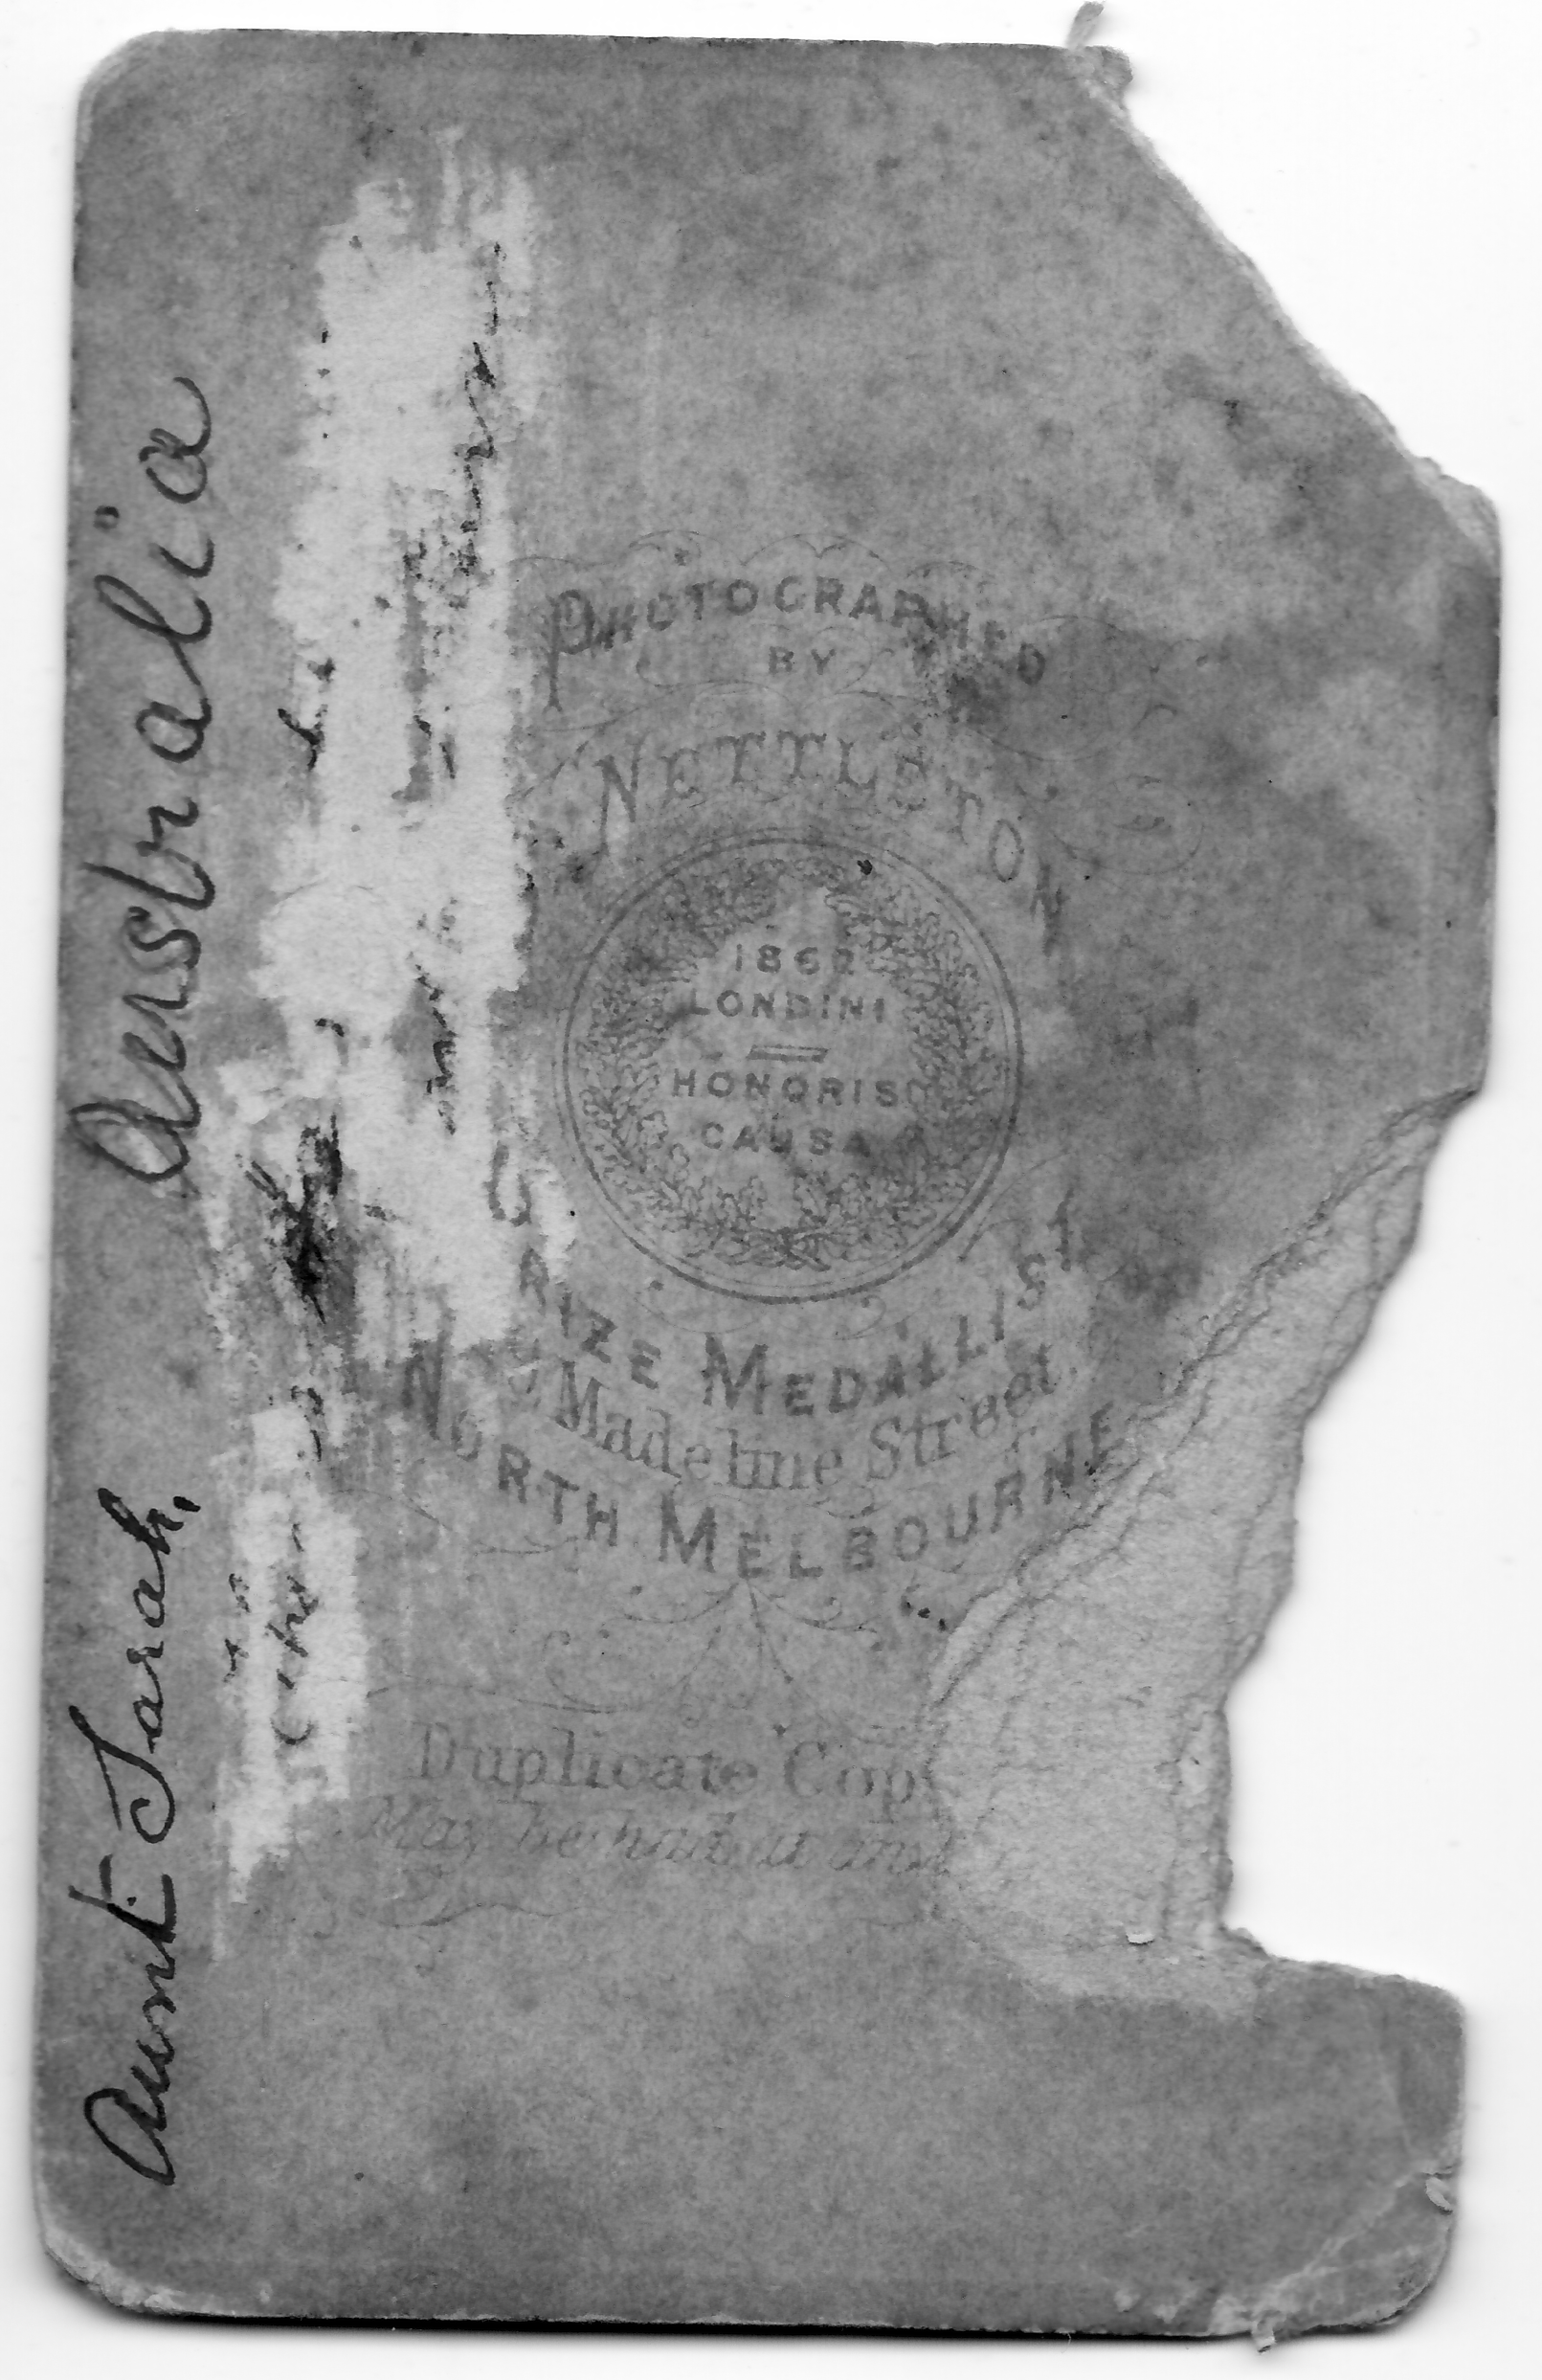 Aunt Sarah, Australia
PHOTOGRAPHED
BY
NETTLETON
1862
LONDINI
HONORIS
CAUSA
RIZE MEDALLIST
Madeline Street
NORTH MELBOURNE
Duplicate Cop
May be had at any